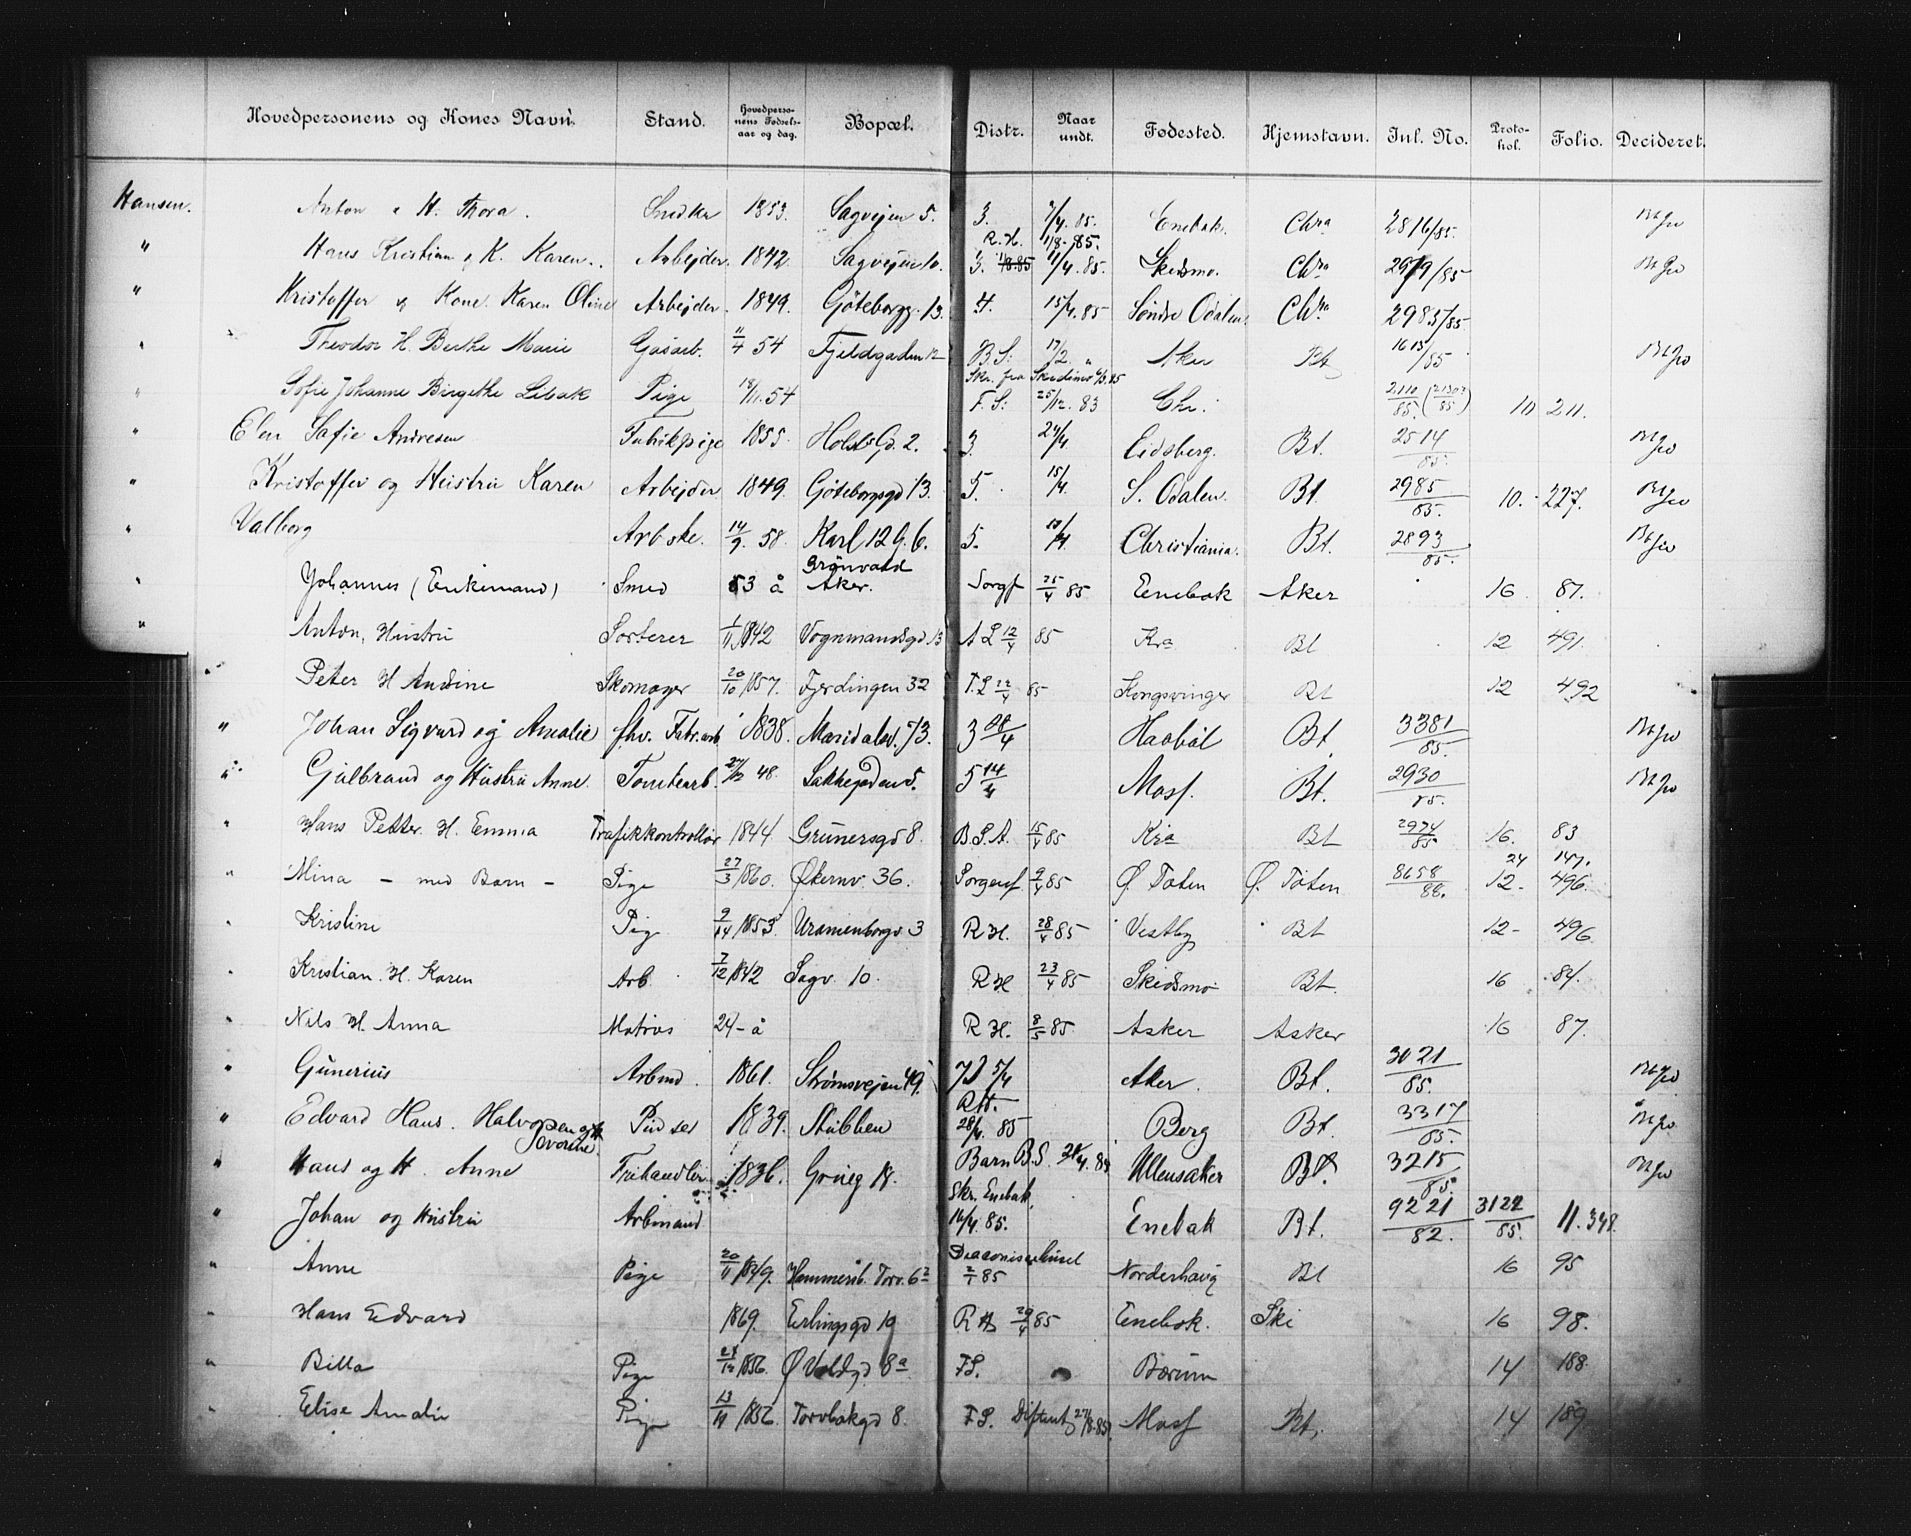 Hovedpersonens og Kones Navn. Stand. Hovedpersonens Fødselsaar og dag. Bopæl. Distr. Naar undt. Fødested. Hjemstavn. Inl. No. Protokol. Folio. Decideret.
Hansen. Anton & H. Thora. Snedker 1853. Sagvejen 5. 3. 7/4.85. Enebak. Chra 2816/85.
R.H. 1/8-85.
" Hans Kristian & K. Karen. Arbejder. 1842. Sagvejen 10. 3. 11/4.85. Skedsmo. Chra 2919/85
" Kristoffer & Kone. Karen Oline Arbejder. 1849. Göteborgg. 13. 4. 15/4.85 Söndre Odalen. Chra 2985/85
" Theodor H. Berthe Marie Gasarb. 11/4 54 Fjeldgaden 12 B.S: 17/2. " Aker Bt 1615/85
Skr. fra Skedsmo 4/3.85
" Sofie Johanne Birgethe Lebak Pige 18/11.54 F.S: 25/12. 83 Chr. 2110/85. (2303/85) 10 211.
" Elen Sofie Andresen Fabrikpige 1855. Holsts Gd. 2. 3. 24/4 Eidsberg. Bt. 2514/85.
" Kristoffer og Hustru Karen Arbejder 1849. Göteborgsgd 13. 5. 15/4. S. Odalen. Bt. 2985/85. 10. 227.
" Valborg Arbske. 14/9. 58. Karl 12 G. 6. 5. 10/4. Christiania. Bt. 2893/85.
" Johannes (Enkemand) Smed 53 å Grönvold Aker. Sorgf 25/4 85 Enebak Aker 16 87.
" Anton, Hustru Sorterer 1/11 1842 Vognmandsgd 13 A L 12/4 85 Kra Bt 12 491.
Peter H Andine Skomager 20/10 1857. Fjerdingen 32 F.L 22/4 85 Kongsvinger Bt 12 492
" Johan Sigvard og Amalie fhv. Fabr.arb 1838. Maridalsv. 73. 3 28/4 Haaböl Bt. 3381/85.
" Gulbrand og Hustru Anne. Tomtearb. 48. Bakkegaden 5. 5 14/4 Moss. Bt. 2930/85.
" Hans Petter H. Emma Trafikkontrollør 1844 Grünersgd 8. B.S.A. 15/4 85 Kra Bt 2974/85 16. 83
24 147.
" Mina - med Barn - Pige 27/3 1860. Økernv. 36. Sorgenf 9/4 85 Ø. Toten Ø. Toten 8658/88. 12- 496.
" Kristine Pige 9/14 1853. Uranienborgv 3 R H. 28/4 85 Vestby Bt 12- 496
" Kristian. H. Karen Arb. 7/12 1842 Sagv. 10. R H 23/4 85 Skedsmo Bt. 16 84.
" Nils H Anna Matros 24- å R H. 8/5 85 Asker Asker 16 87.
" Gunerius Arbmd. 1861. Strömsvejen 49. 7D 5/4 Aker. Bt. 3021/85.
" Edvard Hans. Halvorsen og H Sevorine. 1839. Stubben R.H. 28/4. 85 Berg Bt. 3317/85.
" Hans og H. Anne Frihandler 1836. Gröneg 14. Barn B.S. 24/4. 85 Ullensaker Bt. 3215/85.
" Johan og Hustru Arbmand Skr. Enebak 16/4. 85. Enebak Bt. 9221/82. 3122/85. 11. 348.
" Anne Pige 20/11 1849. Hammersb. Torv. 6 2 Deaconissehuset 2/1 85 Norderhaug Bt 16 95
" Hans Edvard 1869. Erlingsgd 19 R H 29/4 85 Enebak. Ski 16 98.
" Billa Pige 28/12 1856. Ø Voldgd 8a F S. Bærum 14 188.
" Elise Amalie Pige 13/11 1856. Torvbakgd 8. F.S. 27/8.85. Moss Bt. 14 189.